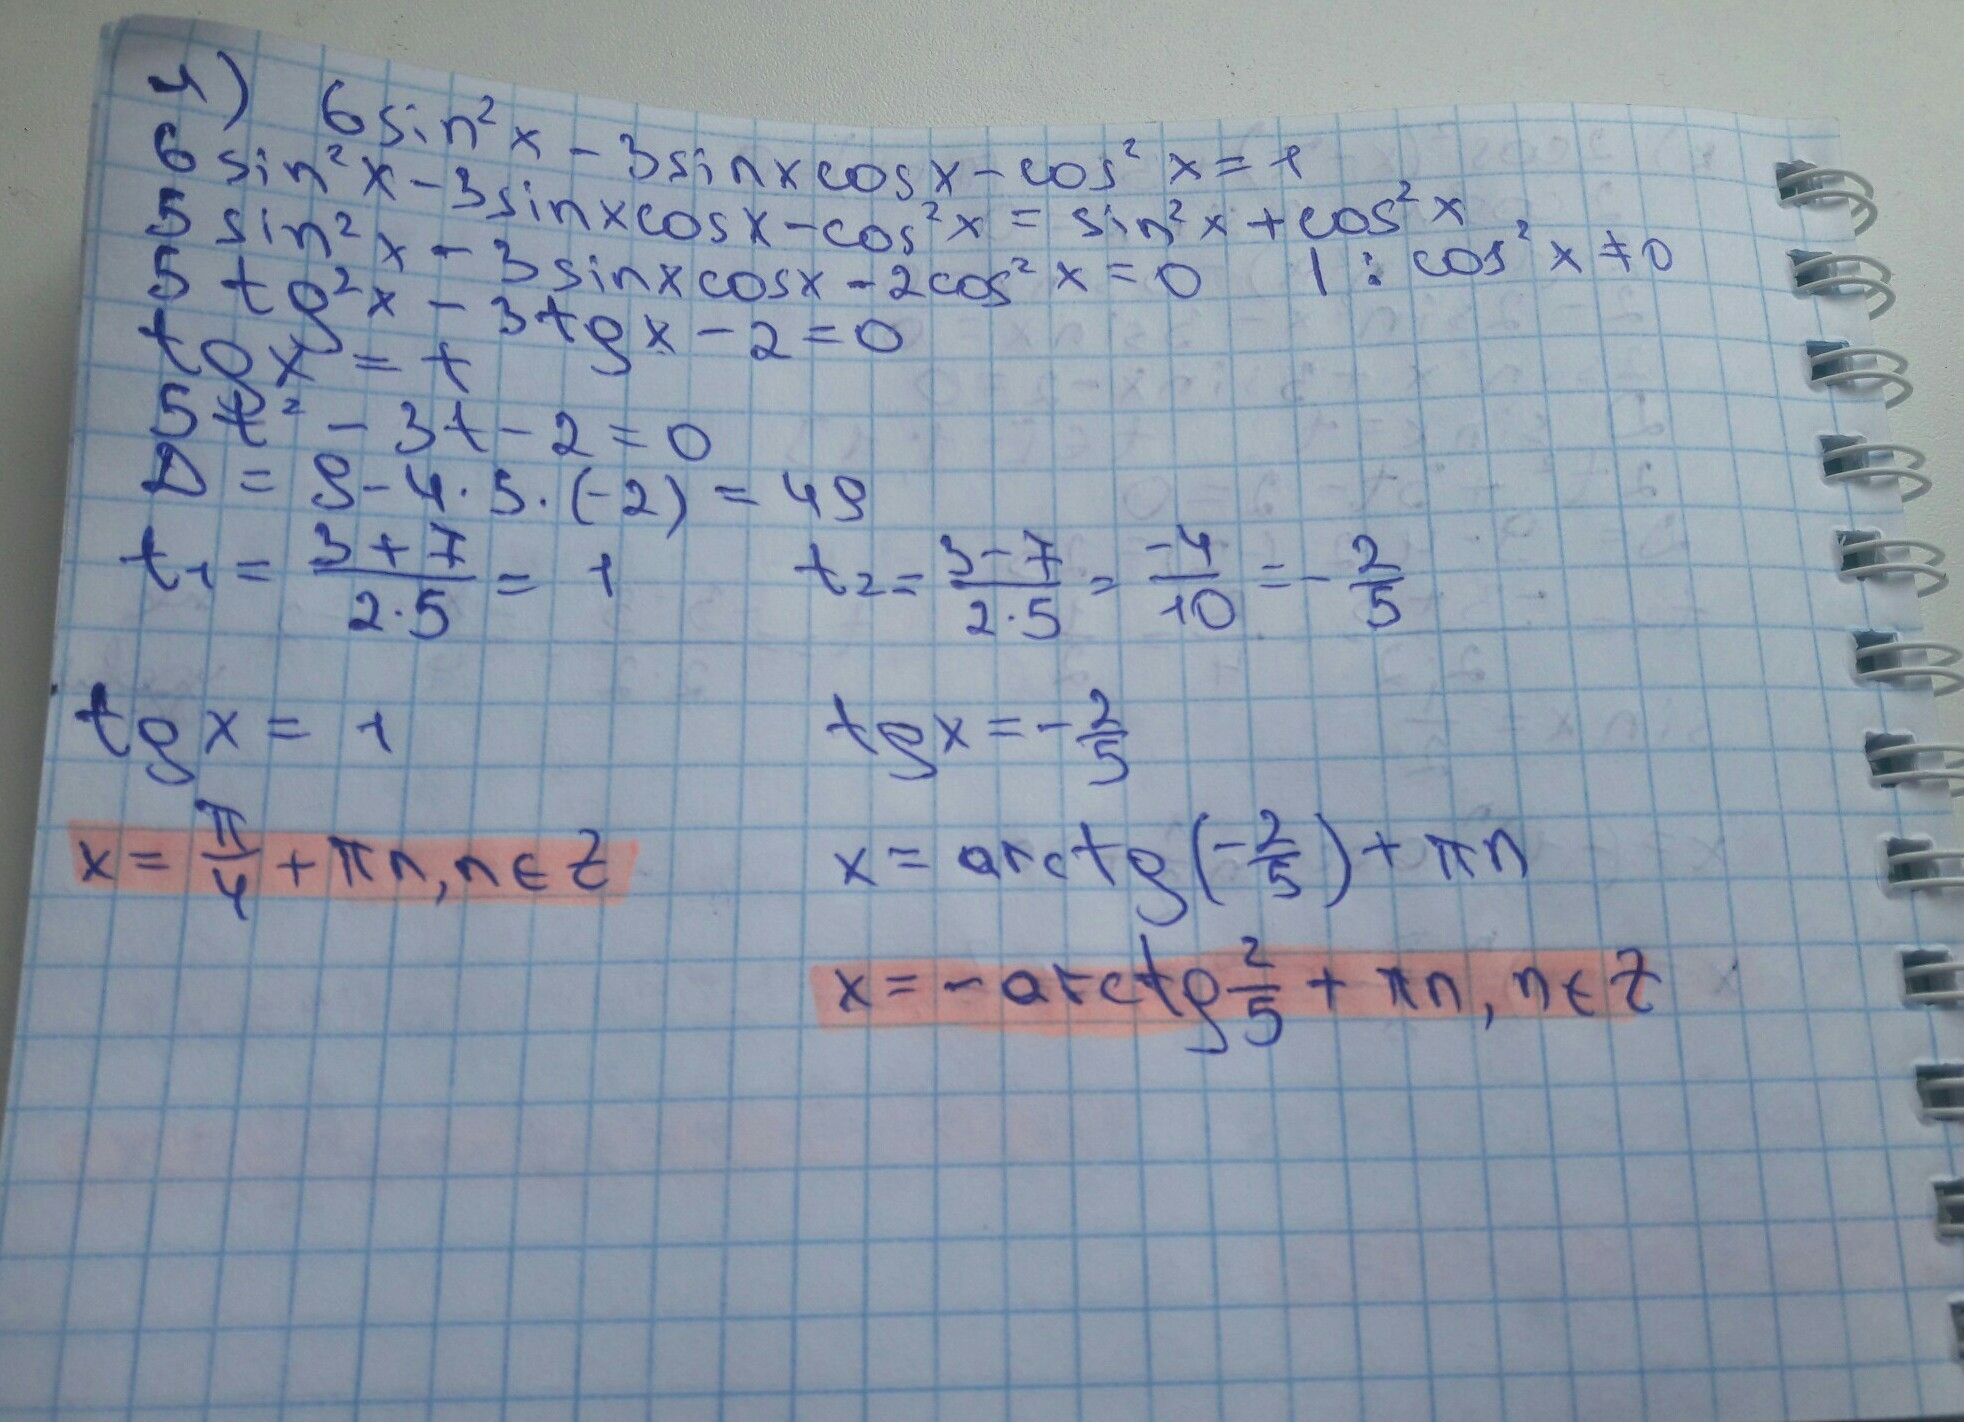 4) 6sin²x - 3sinxcosx - cos²x = 1
6sin²x - 3sinxcosx - cos²x = sin²x + cos²x
5sin²x - 3sinxcosx - 2cos²x = 0 | : cos²x ≠ 0
5tg²x - 3tgx - 2 = 0
tgx = t
5t² - 3t - 2 = 0
D = 9 - 4·5·(-2) = 49
t₁ = (3+7)/(2·5) = 1 t₂ = (3-7)/(2·5) = -4/10 = -2/5
tgx = 1 tgx = -2/5
x = π/4 + πn, n∈Z x = arctg(-2/5) + πn
x = -arctg 2/5 + πn, n∈Z